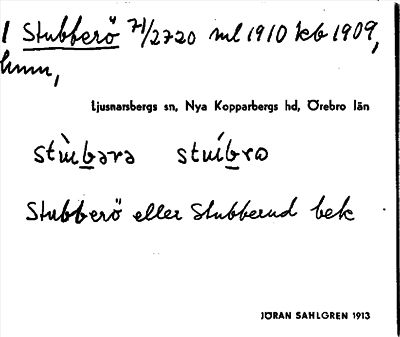 1 Stubberö 71/2720 ml 1910 kb 1909,
hmn,
Ljusnarsbergs sn, Nya Kopparbergs hd, Örebro län
Stubberö eller Stubberud bek
JÖRAN SAHLGREN 1913